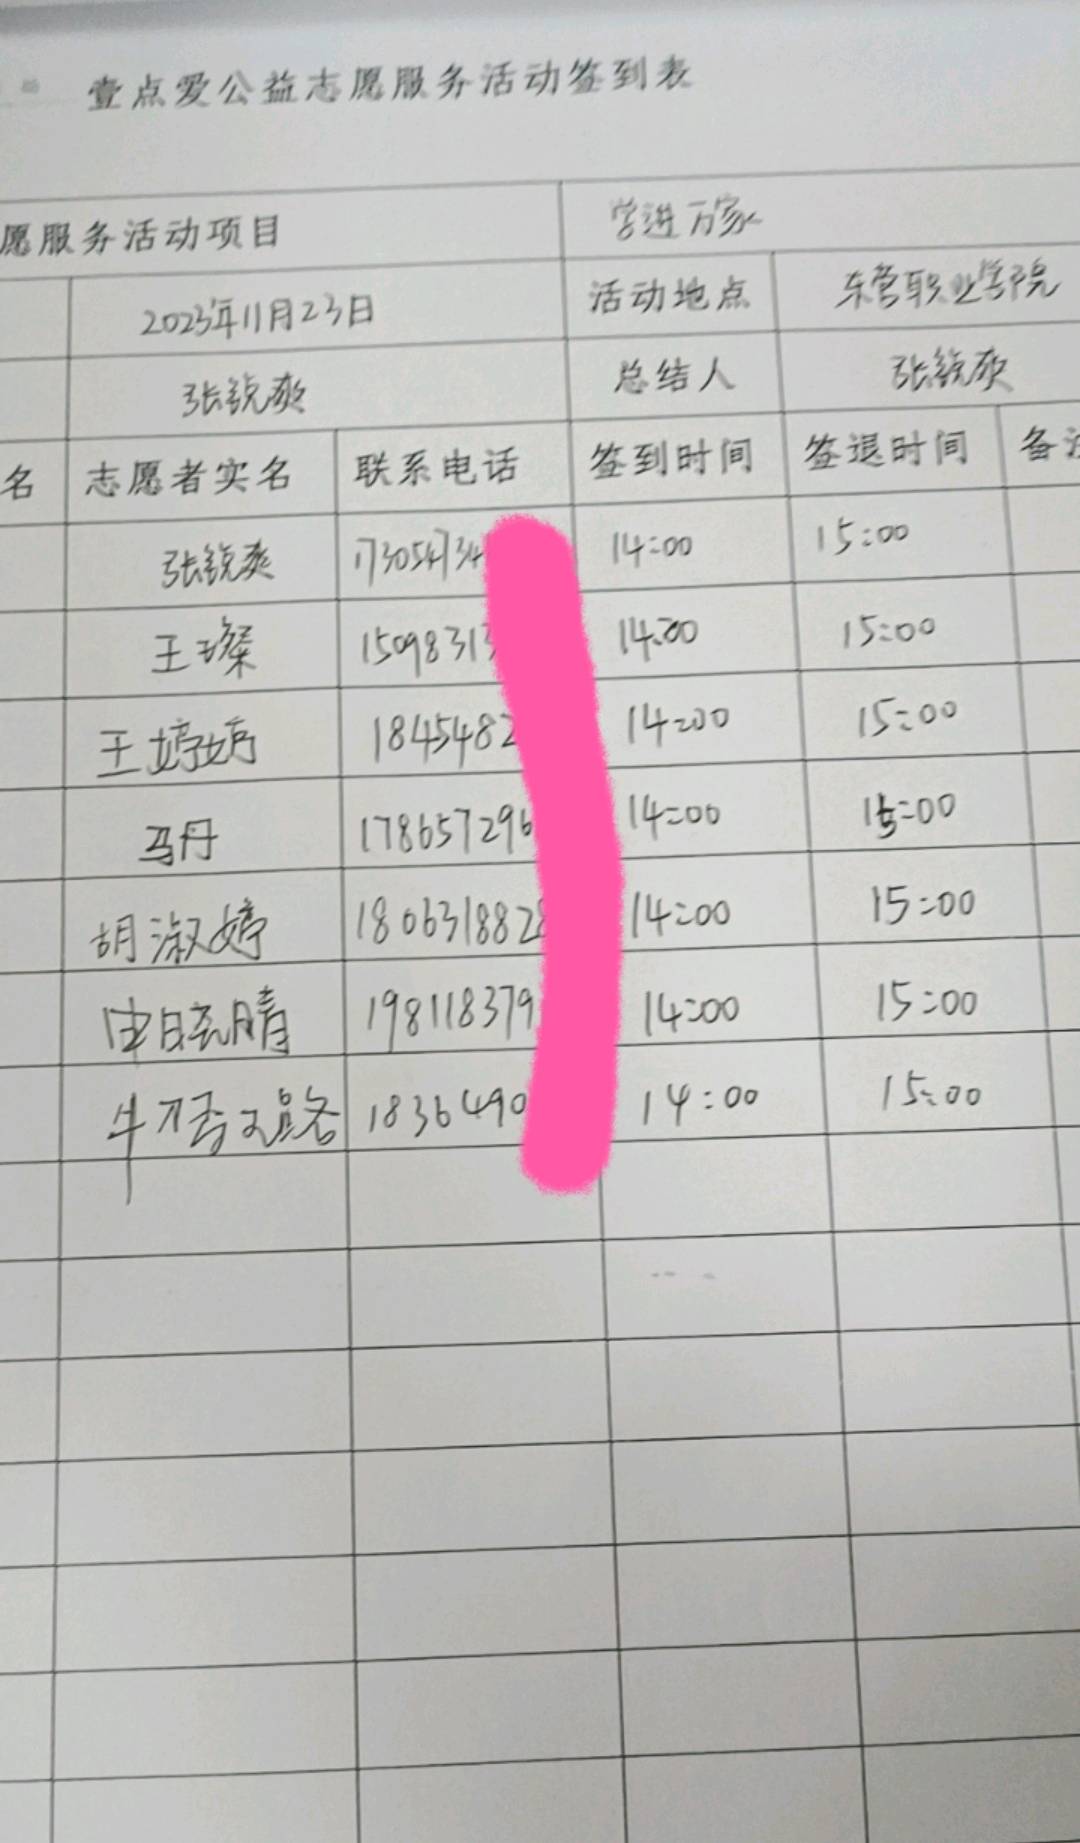 壹点爱公益志愿服务活动签到表
愿服务活动项目 学进万家
2023年11月23日 活动地点 东营职业学院
张锐爽 总结人 张锐爽
名 志愿者实名 联系电话 签到时间 签退时间 备注
张锐爽 17305473 14:00 15:00
王璨 1509831 14:00 15:00
王婷婷 1845482 14:00 15:00
马丹 178657296 14:00 15:00
胡淑婷 1806318828 14:00 15:00
申晓晴 198118379 14:00 15:00
牛 1836490 14:00 15:00